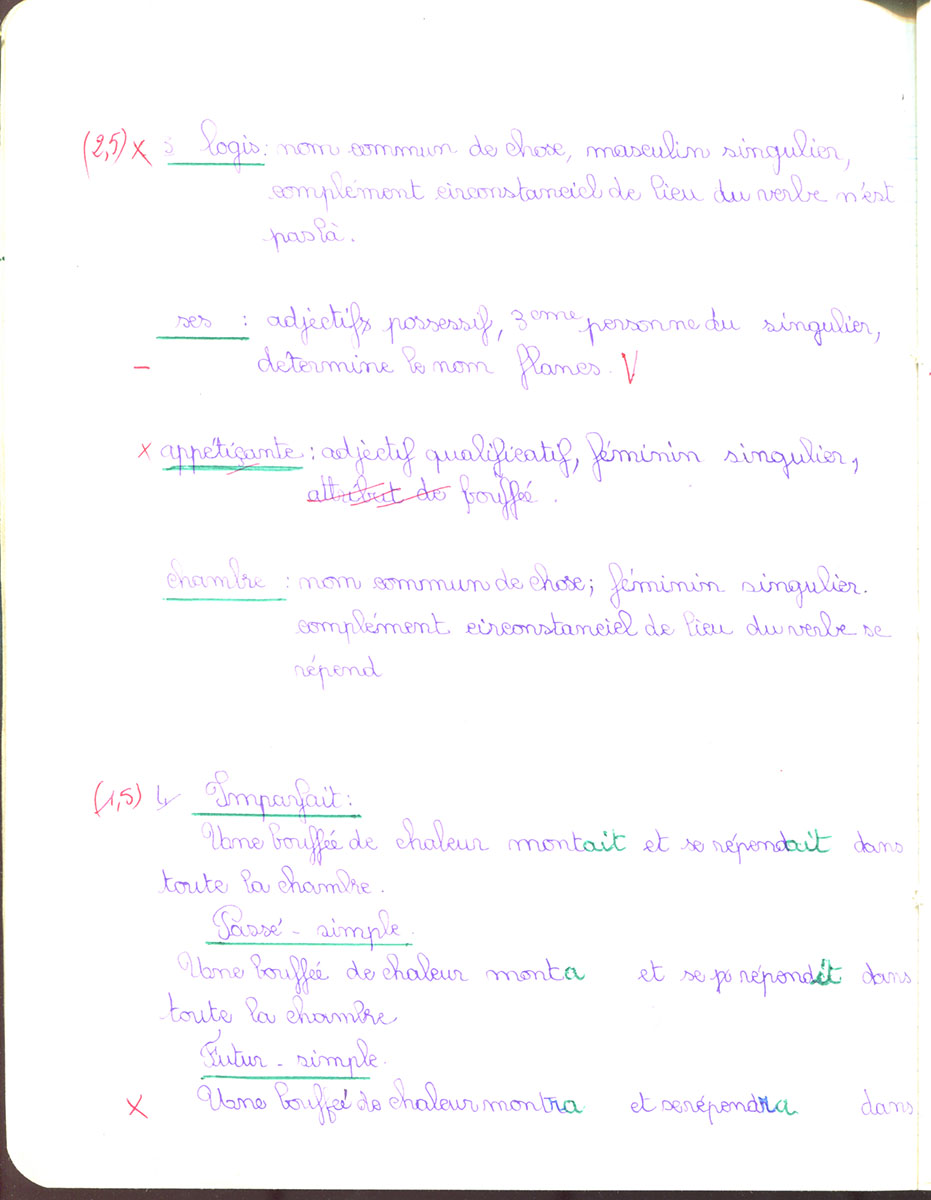 (2,5) x 3 logis : nom commun de chose, masculin singulier,
complément circonstanciel de lieu du verbe n'est
pas là.
ses : adjéctifs possessif, 3eme personne du singulier,
- determine le nom flancs. V
x appétiçante : adjectif qualificatif, féminin singulier,
attribut de bouffée.
chambre : nom commun de chose; féminin singulier.
complément circonstanciel de lieu du verbe se
répend
(1,5) 4 Imparfait :
Une bouffée de chaleur montait et se répendait dans
toute la chambre.
Passé - simple.
Une bouffée de chaleur monta et se répendit dans
toute la chambre
Futur - simple.
x Une bouffeé de chaleur montra et se répendra dans